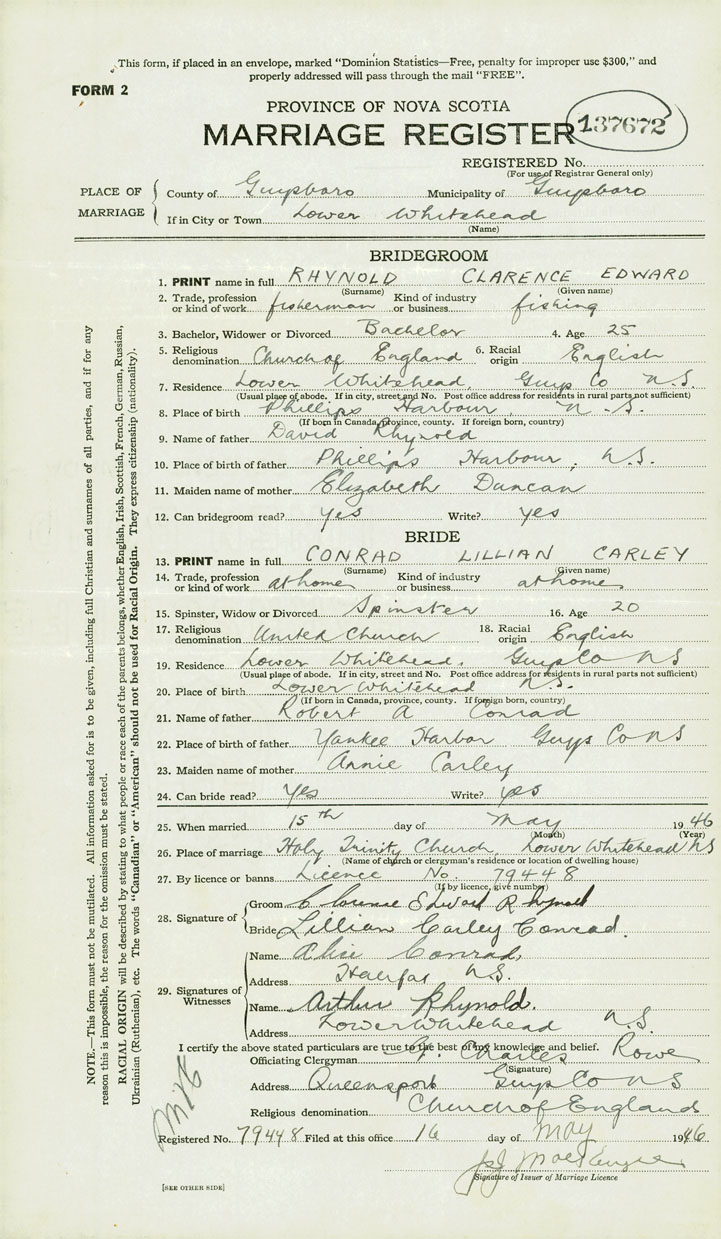 This form, if placed in an envelope, marked "Dominion Statistics—Free, penalty for improper use $300," and
properly addressed will pass through the mail "FREE".
FORM 2
PROVINCE OF NOVA SCOTIA
MARRIAGE REGISTER 137672
REGISTERED No.
(For use of Registrar General only)
PLACE OF MARRIAGE
County of Guysboro Municipality of Guysboro
If in City or Town Lower Whitehead
(Name)
BRIDEGROOM
1. PRINT name in full RHYNOLD CLARENCE EDWARD
(Surname) (Given name)
2. Trade, profession or kind of work fisherman Kind of industry or business fishing
3. Bachelor, Widower or Divorced Bachelor 4. Age 25
5. Religious denomination Church of England 6. Racial origin English
7. Residence Lower Whitehead, Guys Co N.S.
(Usual place of abode. If in city, street and No. Post office address for residents in rural parts not sufficient)
8. Place of birth Phillips Harbour, N.S.
(If born in Canada, province, county. If foreign born, country)
9. Name of father David Rhynold
10. Place of birth of father Phillips Harbour, N.S.
11. Maiden name of mother Elizabeth Duncan
12. Can bridegroom read? yes Write? yes
BRIDE
13. PRINT name in full CONRAD LILLIAN CARLEY
(Surname) (Given name)
14. Trade, profession or kind of work at home Kind of industry or business at home
15. Spinster, Widow or Divorced Spinster 16. Age 20
17. Religious denomination United Church 18. Racial origin English
19. Residence Lower Whitehead, Guys Co N S
(Usual place of abode. If in city, street and No. Post office address for residents in rural parts not sufficient)
20. Place of birth Lower Whitehead N.S.
(If born in Canada, province, county. If foreign born, country)
21. Name of father Robert A Conrad
22. Place of birth of father Yankee Harbor Guys Co N S
23. Maiden name of mother Annie Carley
24. Can bride read? Yes Write? yes
25. When married 15th day of May 1946
(Month) (Year)
26. Place of marriage Holy Trinity Church, Lower Whitehead N S
(Name of church or clergyman's residence or location of dwelling house)
27. By licence or banns Licence No. 79448
(If by licence, give number)
28. Signature of
Groom Clarence Edward Rhynold
Bride Lillian Carley Conrad.
29. Signatures of Witnesses
Name Alice Conrad,
Address Halifax N.S.
Name Arthur Rhynold.
Address Lower Whitehead N.S.
I certify the above stated particulars are true to the best of my knowledge and belief.
Officiating Clergyman Charles Rowe
(Signature)
Address Queensport Guys Co N S
Religious denomination Church of England
Registered No. 79448 Filed at this office 16 day of May 1946
Signature of Issuer of Marriage Licence
[SEE OTHER SIDE]
NOTE.—This form must not be mutilated. All information asked for is to be given, including full Christian and surnames of all parties, and if for any
reason this is impossible, the reason for the omission must be stated.
RACIAL ORIGIN will be described by stating to what people or race each of the parents belongs, whether English, Irish, Scottish, French, German, Russian,
Ukrainian (Ruthenian), etc. The words "Canadian" or "American" should not be used for Racial Origin. They express citizenship (nationality).